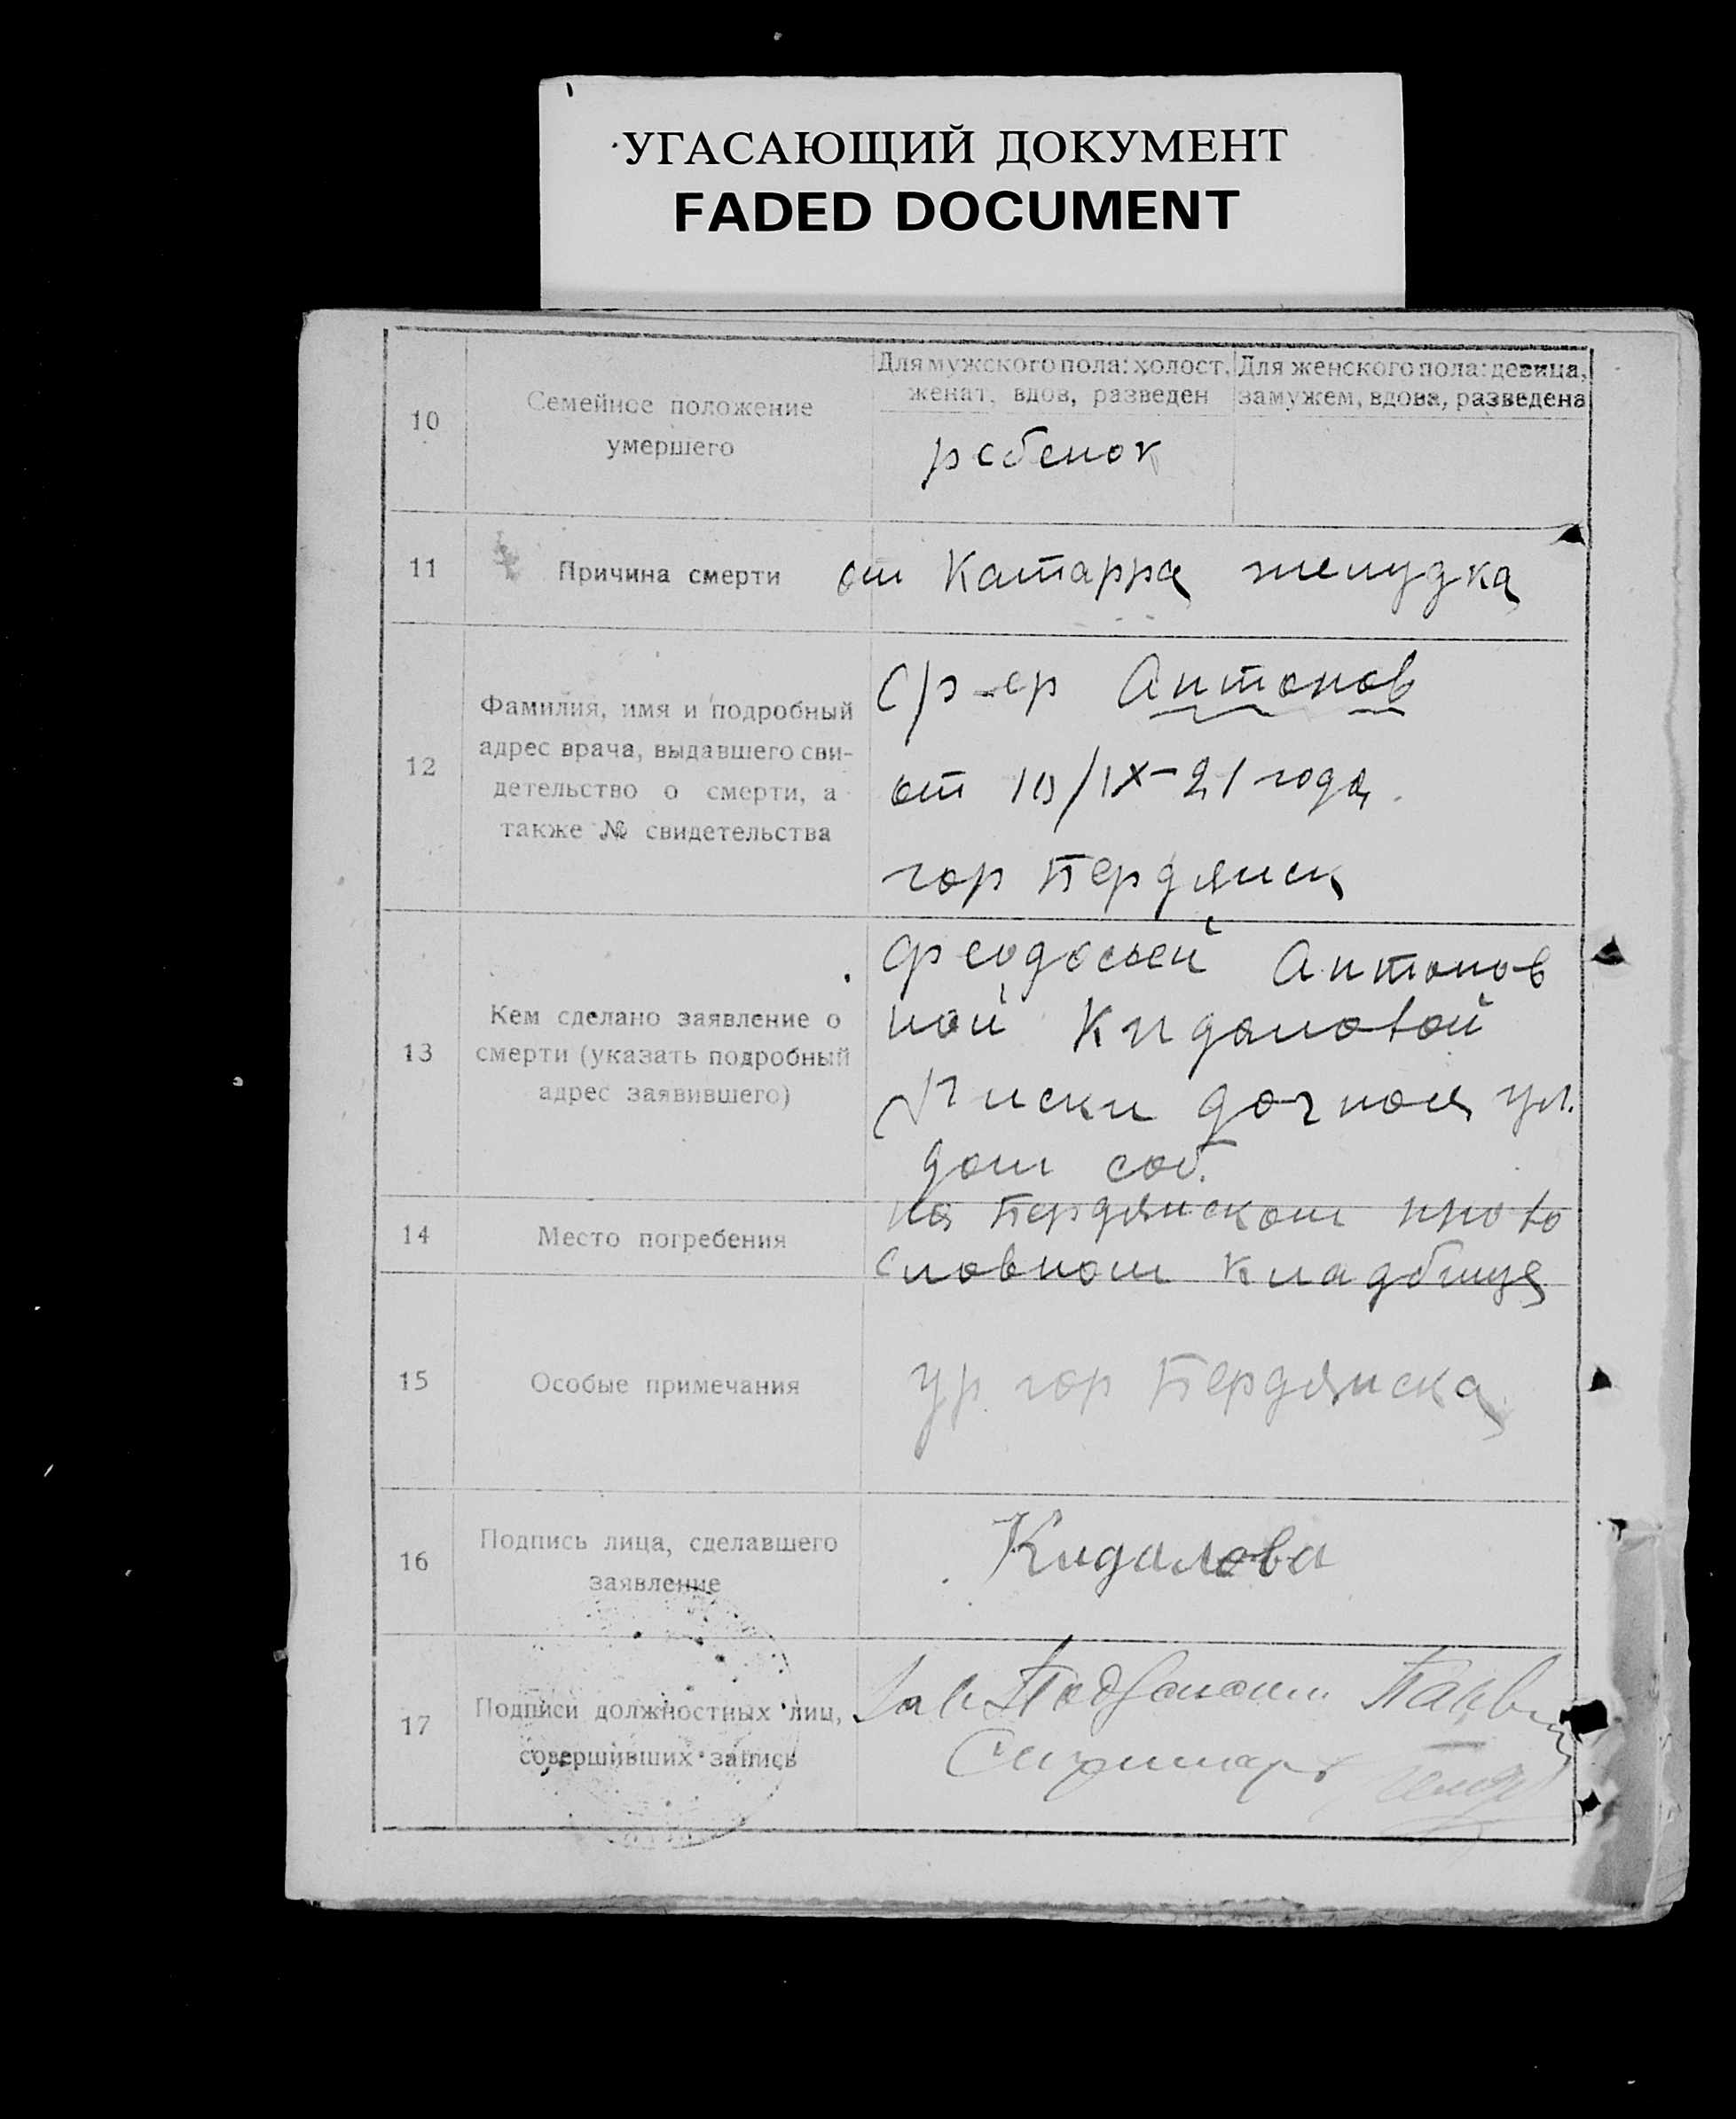 УГАСАЮЩИЙ ДОКУМЕНТ
FADED DOCUMENT
Для мужского пола: холост,
женат, вдов, разведен
Для женского пола: девица,
замужем, вдова, разведена
10
Семейное положение
умершего
ребенок
11
Причина смерти
от Катарра желудка
12
Фамилия, имя и подробный
адрес врача, выдавшего сви-
детельство о смерти, а
также № свидетельства
Антонов
от 10/IX-21 года.
гор Бердянск
13
Кем сделано заявление о
смерти (указать подробный
адрес заявившего)
Феодосьей Антонов
ной Кидаловой
Лиски дачная ул.
дом соб.
14
Место погребения
на Бердянском право
славном кладбище
15
Особые примечания
ур гор Бердянска
16
Подпись лица, сделавшего
заявление
Кидалова
17
Подписи должностных лиц,
совершивших запись
Зав
Секретарь